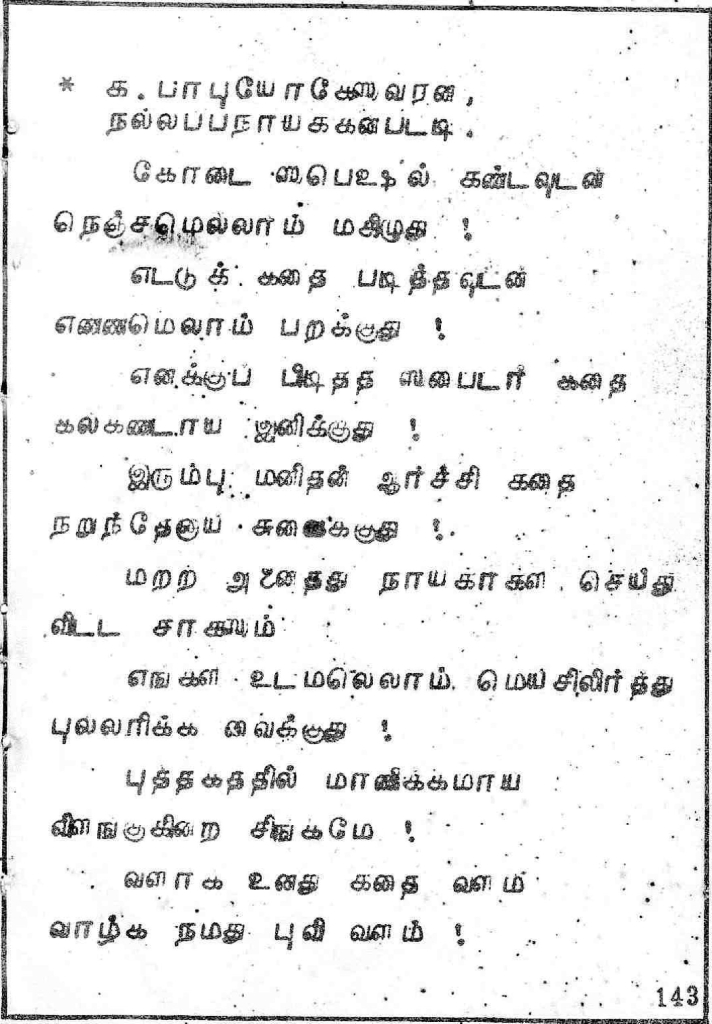 * க. பாபுயோகேஸ்வரன்,
நல்லப்பநாயக்கன்பட்டி.
கோடை ஸ்பெஷல் கண்டவுடன்
நெஞ்சமெல்லாம் மகிழுது !
எட்டுக் கதை படித்தவுடன்
எண்ணமெலாம் பறக்குது !
எனக்குப் பிடித்த ஸ்பைடர் கதை
கல்கண்டாய் இனிக்குது !
இரும்பு மனிதன் ஆர்ச்சி கதை
நறுந்தேனாய் சுவைக்குது !
மற்ற அனைத்து நாயகர்கள் செய்து
விட்ட சாகஸம்
எங்கள் உடம்லெலாம் மெய்சிலிர்த்து
புல்லரிக்க வைக்குது !
புத்தகத்தில் மாணிக்கமாய்
விளங்குகின்ற சிங்கமே !
வளர்க உனது கதை வளம்
வாழ்க நமது புவி வளம் !
143